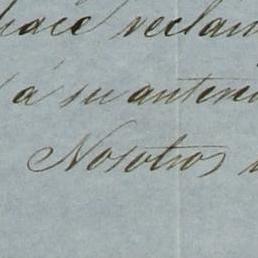 hace reclam
a su anterio
Nosotros